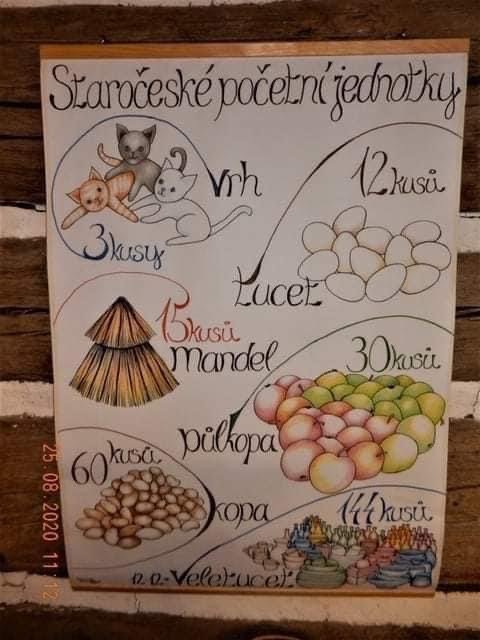 Staročeské početní jednotky
vrh
3 kusy
12 kusů
tucet
15 kusů
mandel
30 kusů
půlkopa
60 kusů
kopa
144 kusů
12.12.-Veletucet
25.08.2020 11:12